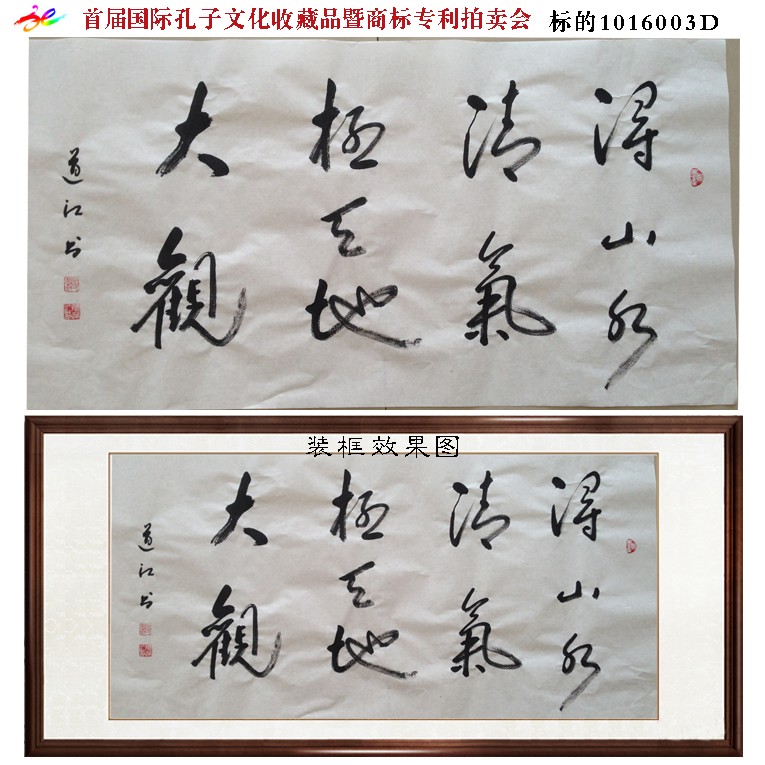 首届国际孔子文化收藏品暨商标专利拍卖会 标的1016003D
得山水
清氣
極天地
大觀
道江书
装框效果图
得山水
清氣
極天地
大觀
道江书